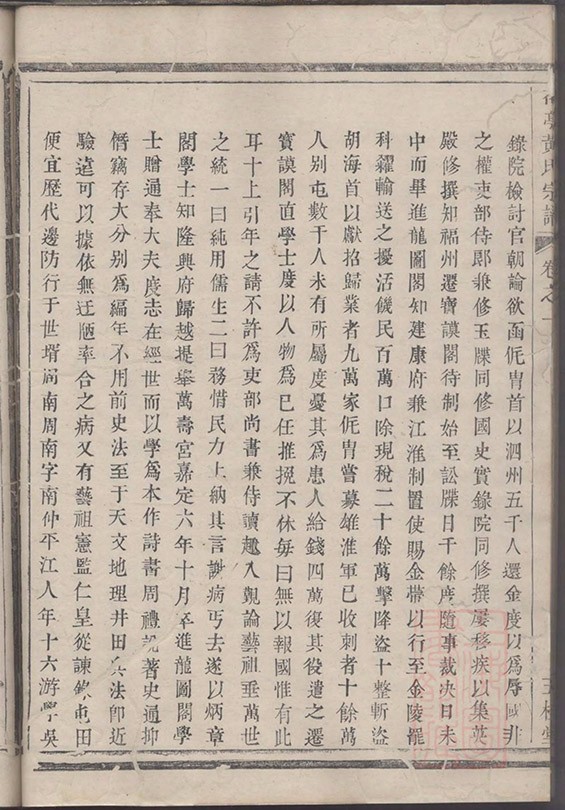 錄院檢討官朝論欲函侂胄首以泗州五千人還金度以為辱國非
之權吏部侍郞兼修玉牒同修國史實錄院同修撰屢移疾以集英
殿修撰知福州遷寶謨閣待制始至訟牒日千餘度隨事裁決日未
中而畢進龍圖閣知建康府兼江淮制置使賜金帶以行至金陵罷
科糴輸送之擾活饑民百萬口除現稅二十餘萬擊降盜十整斬盜
胡海首以獻招歸業者九萬家侂胄嘗募雄淮軍已收刺者十餘萬
人别屯數千人未有所屬度憂其為患人給錢四萬復其役遣之遷
寶謨閣直學士度以人物為已任推挽不休每曰無以報國惟有此
耳十上引年之請不許為吏部尚書兼侍讀趣入覲論藝祖垂萬世
之統一曰純用儒生二曰務惜民力上納其言謝病丐去遂以煥章
閣學士知隆興府歸越提舉萬壽宮嘉定六年十月卒進龍圖閣學
士贈通奉大夫度志在經世而以學為本作詩書周禮說著史通抑
僭竊存大分别為編年不用前史法至于天文地理井田兵法卽近
驗遠可以據依無迂陋牽合之病又有藝祖憲監仁皇從諫錄屯田
便宜歷代邊防行于世壻周南周南字南仲平江人年十六游學吳
亭黃氏宗譜
卷之一